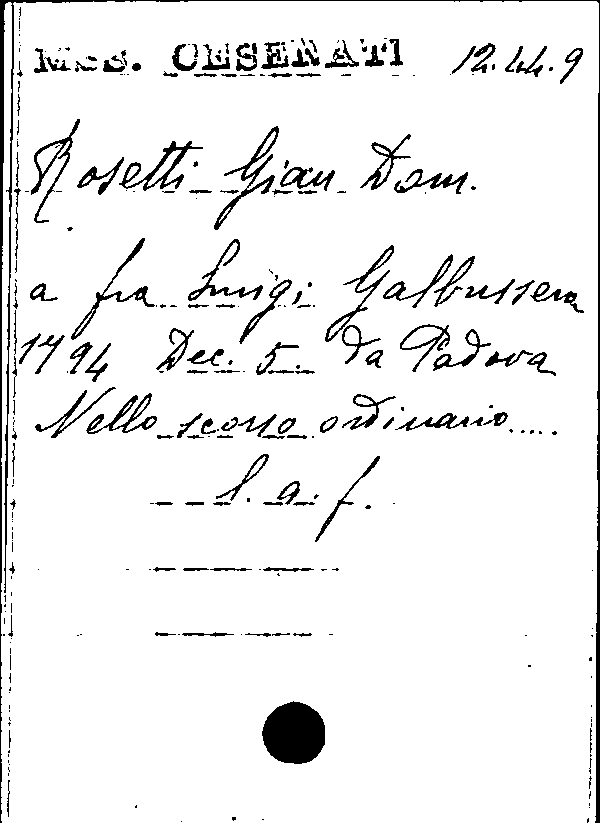 Mss. CESENATI 12.44.9
Rosetti Gian Dom.
a fra Luigi Galbussera
1794 Dec. 5. da Padova
Nello scorso ordinario.....
l. a. f.